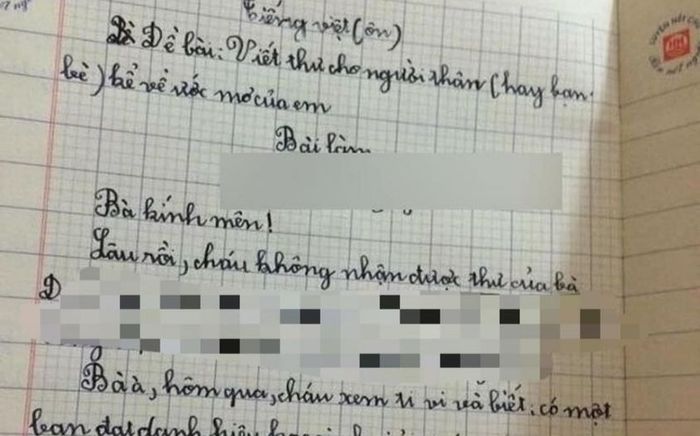 Tiếng việt (ôn)
Đề bài: Viết thư cho người thân (hay bạn
bè) kể về ước mơ của em
Bài làm
Bà kính mên!
Lâu rồi, cháu không nhận được thư của bà
Đ
Bà à, hôm qua, cháu xem ti vi và biết: có một
bạn đạt danh hiệu